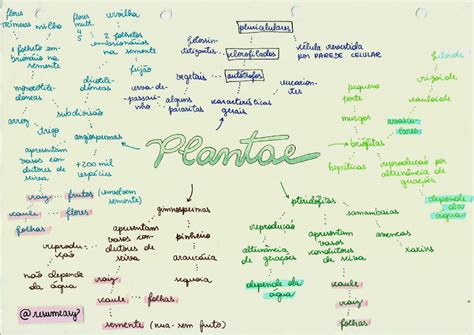 flores
trímeras
milho
1 folheto em-
brionário na
semente
monocotile-
dôneas
arroz
trigo
flores
mult.
4 5
ervilha
2 folhetos
embrionários
na semente
feijão
dicotile-
dôneas
subdivisão
angiospermas
apresentam
vasos con-
dutores de
seiva
+200 mil
espécies
raiz
frutos (envolvem
semente)
caule
flores
folhas
fotossin-
tetizantes
pluricelulares
clorofilados
autótrofos
célula revestida
por PAREDE CELULAR
vegetais
eucarion-
tes
erva-de-
passari-
nho
alguns
parasitas
características
gerais
Plantae
filoide
rizoide
cauloide
pequeno
porte
musgos
avascu-
lares
briófitas
hepáticas
reprodução por
alternância
de gerações
depende
da
água
gimnospermas
reprodu-
ção
não depende
da água
apresentam
vasos con-
dutores de
seiva
pinheiro
araucária
sequoia
raiz
caule
folhas
semente (nua - sem fruto)
pteridófitas
reprodução
alternância
de gerações
depende da
água
apresentam
vasos
condutores
de seiva
samambaias
avencas
xaxins
raiz
caule
folhas
@resumeasy?